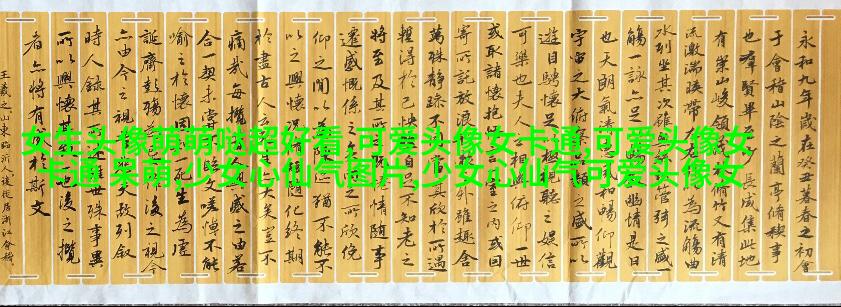 女生头像萌萌哒超好看,可爱头像女卡通,可爱头像女
卡通呆萌,少女心仙气图片,少女心仙气可爱头像女
永和九年歲在癸丑暮春之初會
于會稽山陰之蘭亭脩稧事
也羣賢畢至少長咸集此地
有崇山峻領茂林脩竹又有清
流激湍暎帶左右為流觴曲
水列坐其次雖無管弦之盛一
觴一詠亦足以幽情是日
也天朗氣清和暢仰觀
宇宙之大俯察品類之盛所以
遊目騁懷足以極視聽之娛信
可樂也夫人之相與俯仰一世
或取諸懷抱言一室之內或因
寄所託放浪之外雖趣舍
萬殊靜躁不同當其欣於所遇
暫得於己快然自足不知老之
將至及其所之情隨事
遷感慨係之矣之所欣俛
仰之間以為猶不能不
以之興懷況隨化終期
於盡古人云死生亦大矣豈不
痛哉每攬興感之由若
合一契未嘗不臨文嗟悼不能
喻之於懷固知一死生為虛
誕齊彭殤為妄作後之視今
亦由今之視昔故列敘
時人錄其所述雖世殊事異
所以興懷其致一也後之攬
者亦將有感於斯文